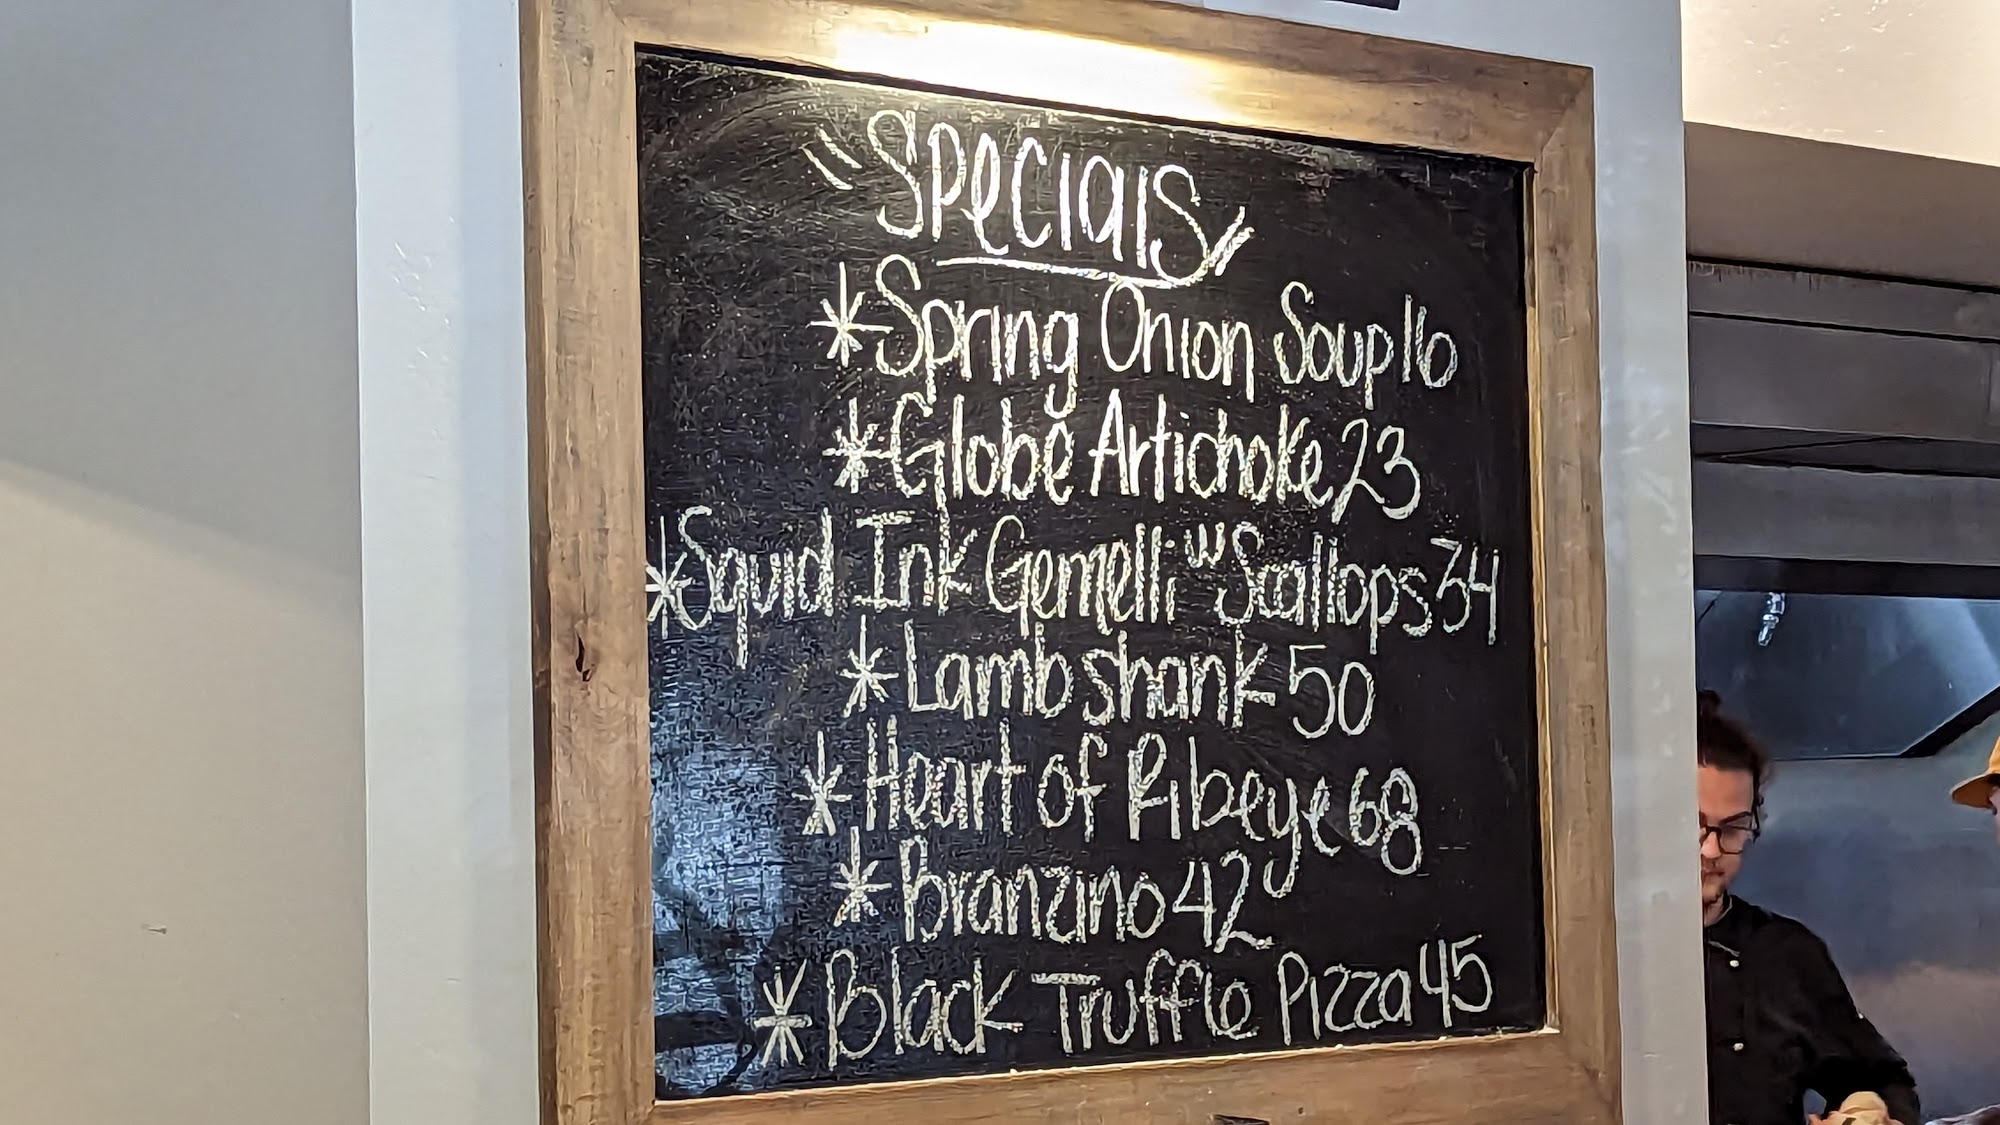 "Specials"
*Spring Onion Soup 16
*Globe Artichoke 23
*Squid Ink Gemelli w Scallops 34
*Lamb shank 50
*Heart of Ribeye 68
*Branzino 42
*Black Truffle Pizza 45